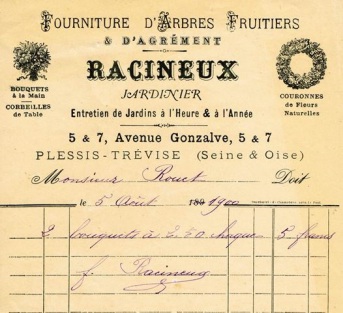 Fourniture d'Arbres Fruitiers
& d'Agrément
RACINEUX
JARDINIER
BOUQUETS
à la Main
CORBEILLES
de Table
COURONNES
de Fleurs
Naturelles
Entretien de Jardins à l'Heure & à l'Année
5 & 7, Avenue Gonzalve, 5 & 7
PLESSIS-TRÉVISE (Seine & Oise)
Monsieur Rouet Doit
le 5 Août 189 1900
2 bouquets à 2.50 chaque 5 francs
f. Racineux